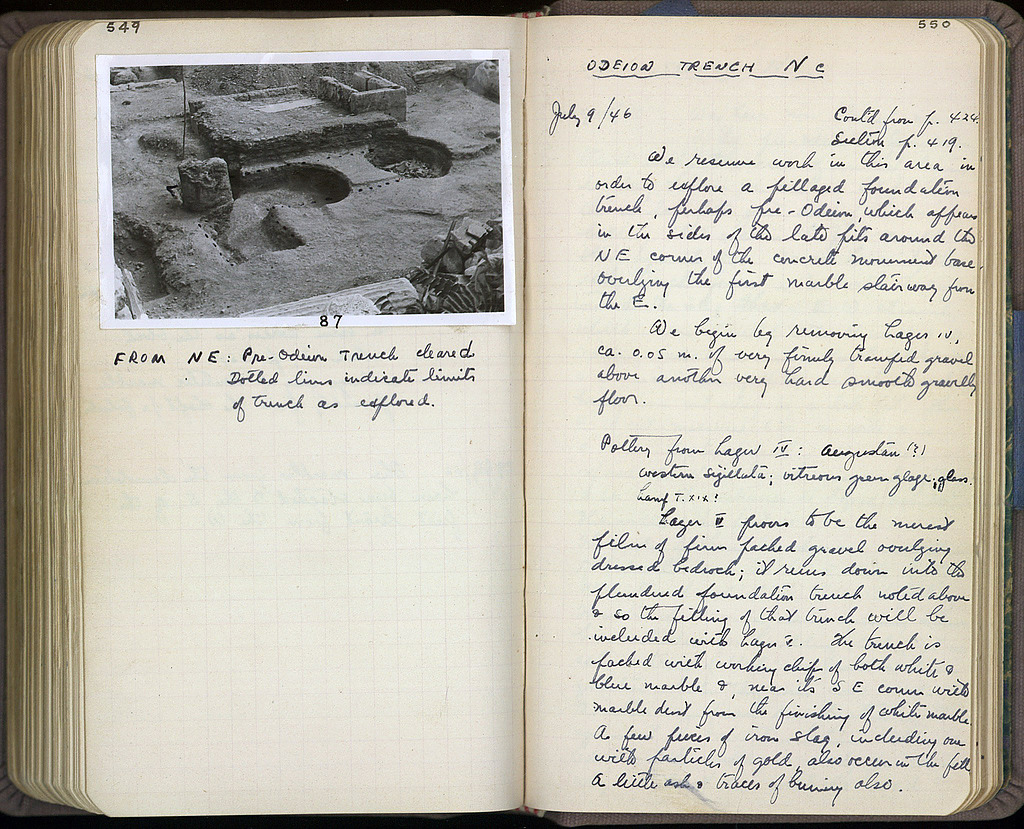 549
87
FROM NE: Pre-Odeion Trench cleared
Dotted lines indicate limits
of trench as explored.
550
ODEION TRENCH N c
July 9/46
Cont'd from p. 424.
Section p. 419.
We resume work in this area in
order to explore a pillaged foundation
trench, perhaps pre-Odeion, which appears
in the sides of the late pits around the
NE corner of the concrete monument base,
overlying the first marble stairway from
the E.
We begin by removing Layer IV,
ca. 0.05 m. of very firmly tramped gravel
above another very hard smooth gravelly
floor.
Pottery from Layer IV: Augustan (?)
western sigillata; vitreous green glaze; glass.
Lamp T. XIX?
Layer V proves to be the merest
film of firm packed gravel overlying
dressed bedrock; it runs down into the
plundered foundation trench noted above
& so the filling of that trench will be
included with Layer V. The trench is
packed with working chips of both white &
blue marble &, near its SE corner with
marble dust from the finishing of white marble.
A few pieces of iron slag, including one
with particles of gold, also occur in the fill
A little ash & traces of burning also.